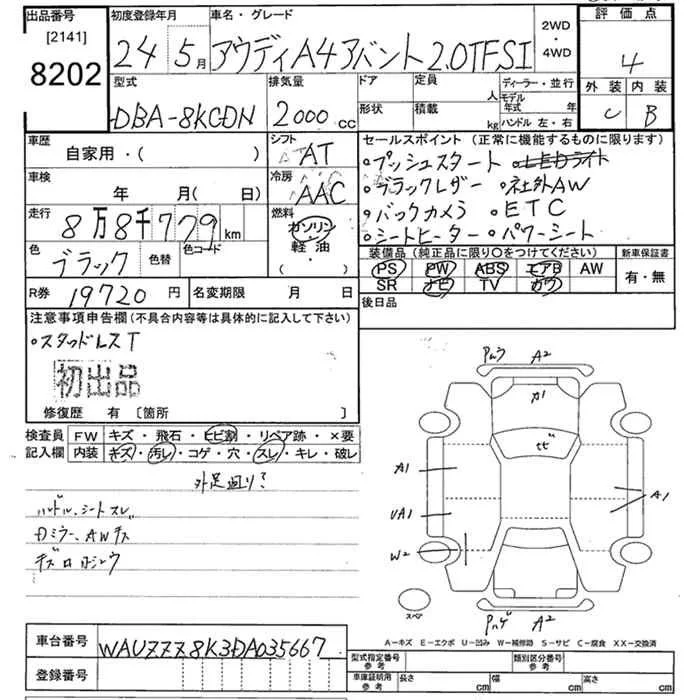 出品番号
[2141]
8202
初度登録年月
24 5月
車名・グレード
アウディA4アバント 2.0TFSI
2WD
・
4WD
評価点
4
外装 内装
C B
型式
DBA-8KCDN
排気量
2000cc
ドア
形状
定員
人
積載
kg
ディーラー・並行
モデル年式 年
ハンドル 左・右
車歴
自家用・( )
シフト
AT
セールスポイント(正常に機能するものに限ります)
・プッシュスタート ・LEDライト
・ブラックレザー ・社外AW
・バックカメラ ・ETC
・シートヒーター ・パワーシート
車検
年 月( 日)
冷房
AAC
走行
8万8千779km
燃料
ガソリン
軽油・
( ・ )
色
ブラック
色替
色コード
装備品(純正品に限り〇をつけてください)
新車保証書
PS PW ABS エアB AW
SR ナビ TV カワ
有・無
R券 19720円
名変期限 月 日
後日品
注意事項申告欄(不具合内容等は具体的に記入して下さい)
・スタッドレスT
初出品
修復歴 有 [箇所 ]
検査員
記入欄
FW キズ・飛石・ヒビ割・リペア跡・×要
内装 キズ・汚レ・コゲ・穴・スレ・キレ・破レ
外足廻り?
ハンドル、シートスレ
Dミラー、AWキズ
A2
A1
ヒビ
A1
A1
UA1
W2
スペア
A2
A-キズ E-エクボ U-凹み W-補修跡 S-サビ C-腐食 XX-交換済
車台番号
WAUZZZ8K3DA035667
登録番号
型式指定番号
参考
類別区分番号
参考
車庫証明用
参考
長さ cm
幅 cm
高さ cm